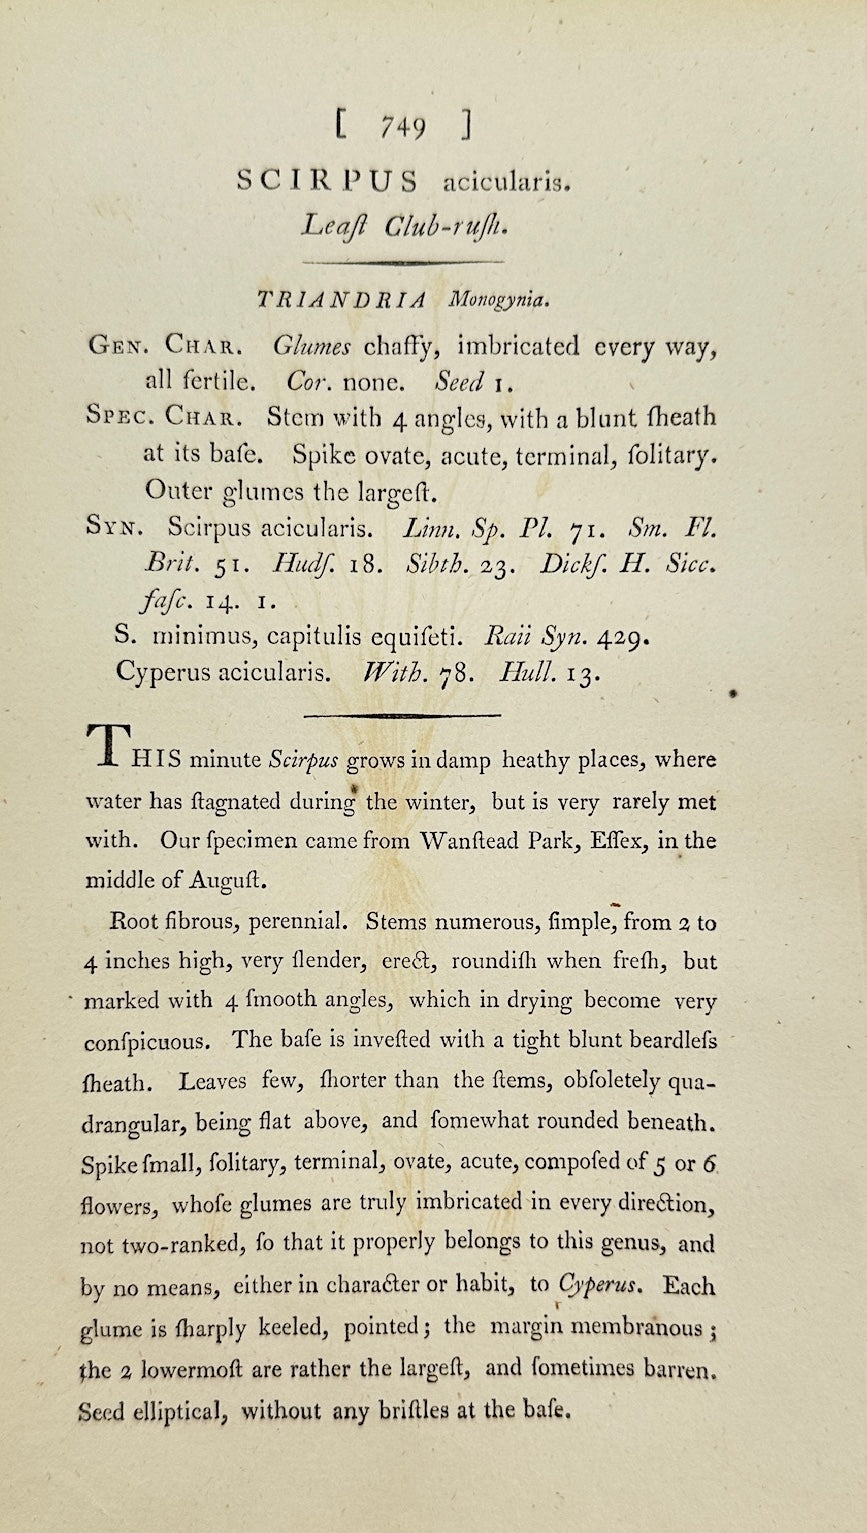 [ 749 ]
SCIRPUS acicularis.
Leaſt Club-ruſh.
TRIANDRIA Monogynia.
GEN. CHAR. Glumes chaffy, imbricated every way,
all fertile. Cor. none. Seed 1.
SPEC. CHAR. Stem with 4 angles, with a blunt ſheath
at its baſe. Spike ovate, acute, terminal, ſolitary.
Outer glumes the largeſt.
SYN. Scirpus acicularis. Linn. Sp. Pl. 71. Sm. Fl.
Brit. 51. Hudſ. 18. Sibth. 23. Dickſ. H. Sicc.
faſc. 14. 1.
S. minimus, capitulis equiſeti. Raii Syn. 429.
Cyperus acicularis. With. 78. Hull. 13.
THIS minute Scirpus grows in damp heathy places, where
water has ſtagnated during the winter, but is very rarely met
with. Our ſpecimen came from Wanſtead Park, Eſſex, in the
middle of Auguſt.
Root fibrous, perennial. Stems numerous, ſimple, from 2 to
4 inches high, very ſlender, erect, roundiſh when freſh, but
marked with 4 ſmooth angles, which in drying become very
conſpicuous. The baſe is inveſted with a tight blunt beardleſs
ſheath. Leaves few, ſhorter than the ſtems, obſoletely qua-
drangular, being flat above, and ſomewhat rounded beneath.
Spike ſmall, ſolitary, terminal, ovate, acute, compoſed of 5 or 6
flowers, whoſe glumes are truly imbricated in every direction,
not two-ranked, ſo that it properly belongs to this genus, and
by no means, either in character or habit, to Cyperus. Each
glume is ſharply keeled, pointed; the margin membranous;
the 2 lowermoſt are rather the largeſt, and ſometimes barren.
Seed elliptical, without any briſtles at the baſe.